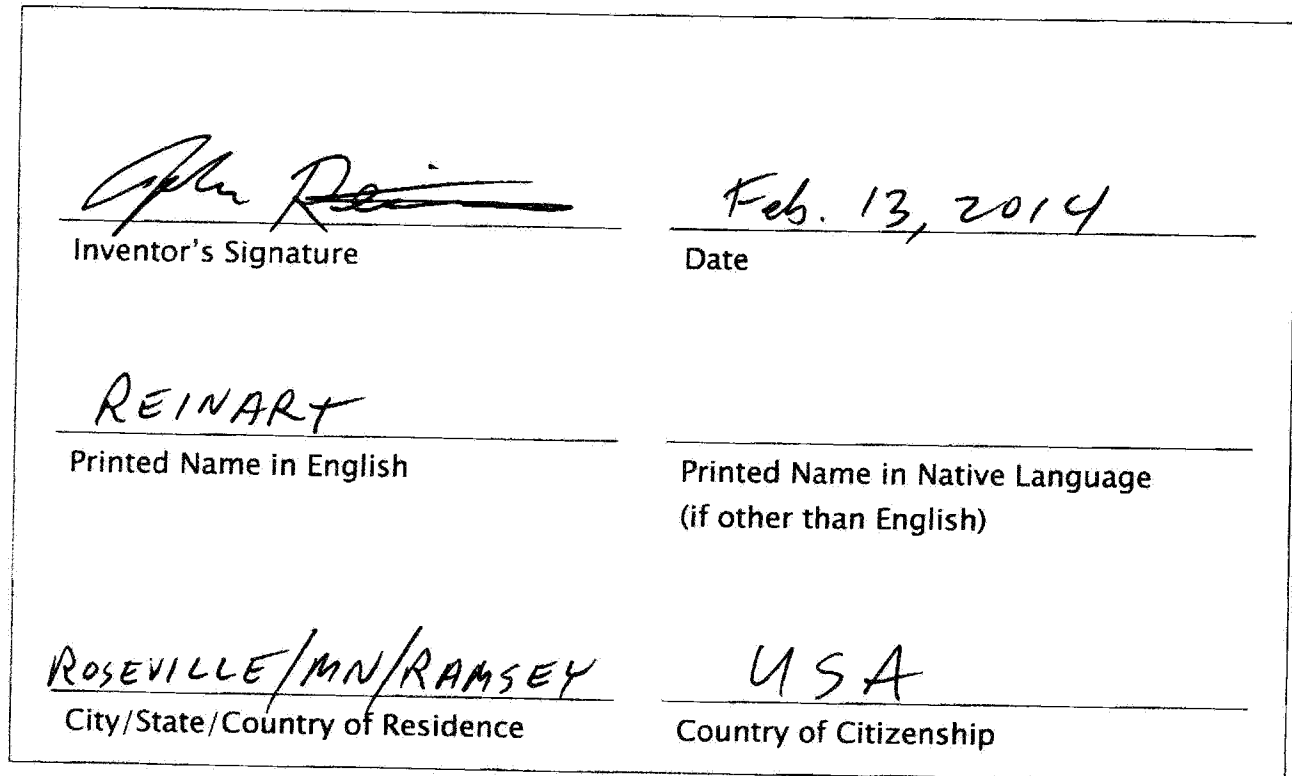 Feb. 13, 2014
Inventor's Signature
Date
REINART
Printed Name in English
Printed Name in Native Language
(if other than English)
ROSEVILLE/MN/RAMSEY
USA
City/State/Country of Residence
Country of Citizenship